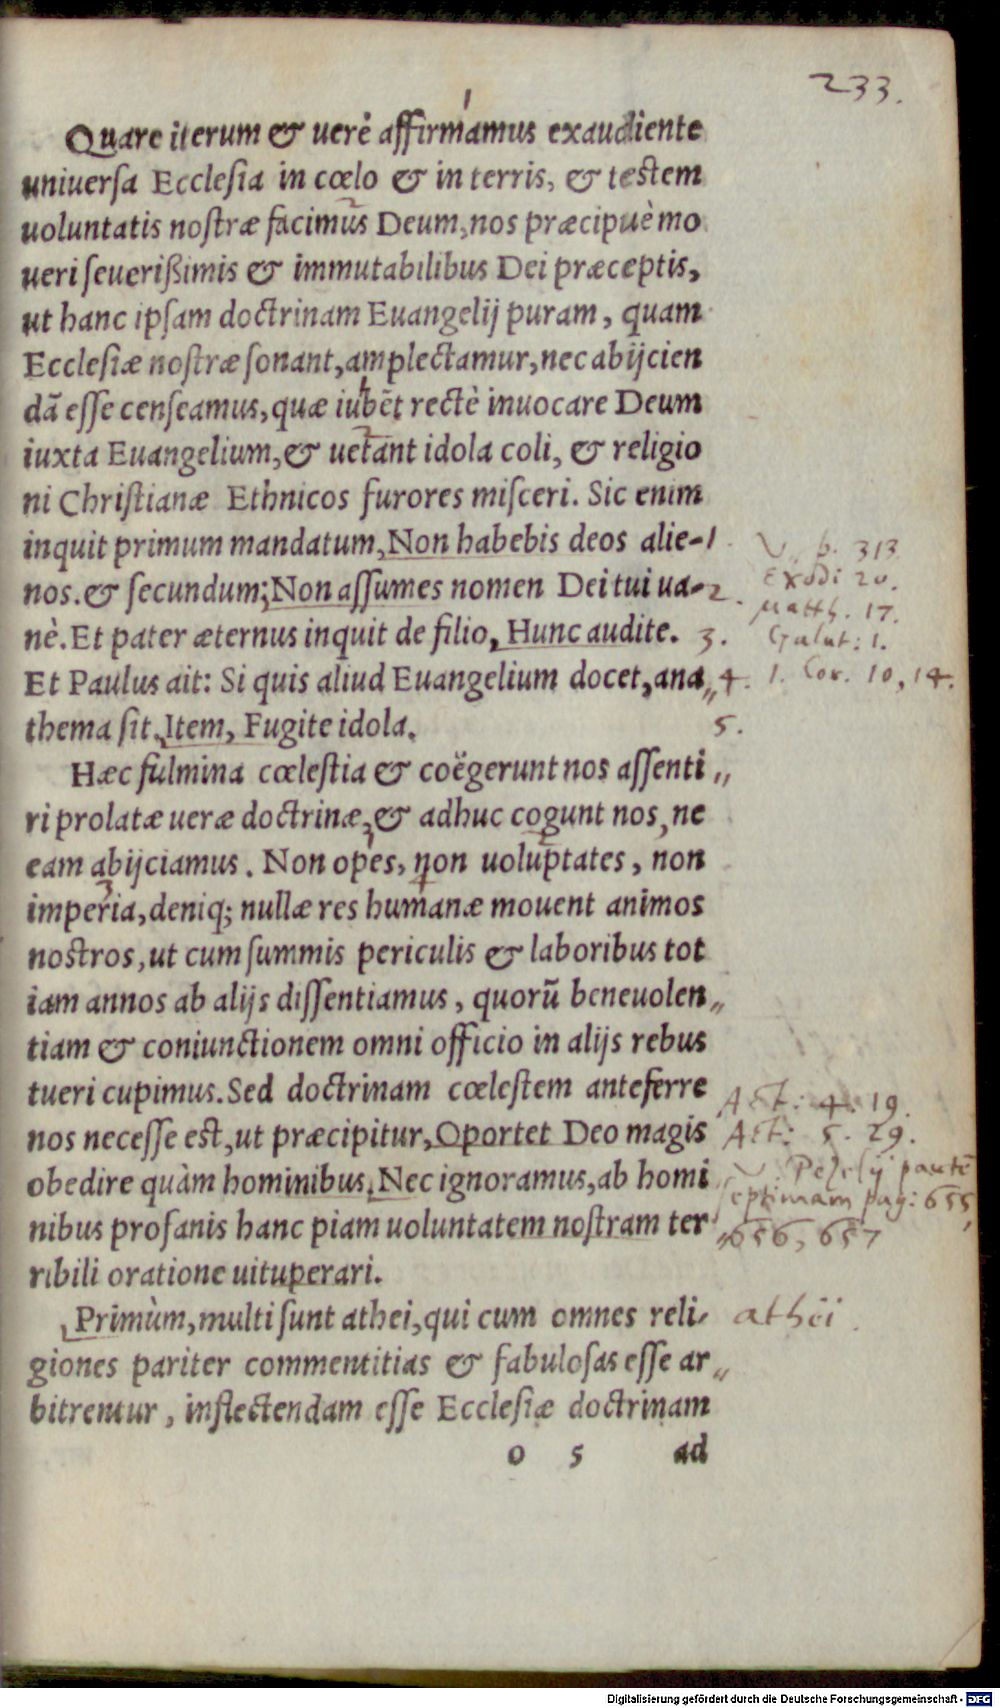 233.
Quare iterum & uerè affirmamus exaudiente
universa Ecclesia in cœlo & in terris, & testem
uoluntatis nostræ facimus Deum, nos præcipuè mo
ueri seuerißimis & immutabilibus Dei præceptis,
ut hanc ipsam doctrinam Euangelij puram, quam
Ecclesiæ nostræ sonant, amplectamur, nec abijcien
dã esse censeamus, quæ iubẽt rectè inuocare Deum
iuxta Euangelium, & uetant idola coli, & religio
ni Christianæ Ethnicos furores misceri. Sic enim
inquit primum mandatum, Non habebis deos alie- 1
nos. & secundum; Non assumes nomen Dei tui ua- 2.
nè. Et pater æternus inquit de filio, Hunc audite. 3.
Et Paulus ait: Si quis aliud Euangelium docet, ana 4.
thema sit. Item, Fugite idola. 5.
p. 313
Exodi 20.
Matth. 17.
Galat: 1.
1. Cor. 10, 14.
Hæc fulmina cœlestia & coëgerunt nos assenti
ri prolatæ ueræ doctrinæ, & adhuc cogunt nos, ne
eam abijciamus. Non opes, non uoluptates, non
imperia, deniq; nullæ res humanæ mouent animos
nostros, ut cum summis periculis & laboribus tot
iam annos ab alijs dissentiamus, quorũ beneuolen
tiam & coniunctionem omni officio in alijs rebus
tueri cupimus. Sed doctrinam cœlestem anteferre
nos necesse est, ut præcipitur, Oportet Deo magis
obedire quàm hominibus. Nec ignoramus, ab homi
nibus profanis hanc piam uoluntatem nostram ter
ribili oratione uituperari.
Act: 4. 19.
Act: 5. 29.
Pezelij partẽ
septimam pag: 655,
656, 657
Primùm, multi sunt athei, qui cum omnes reli-
giones pariter commentitias & fabulosas esse ar
bitrentur, inflectendam esse Ecclesiæ doctrinam
athëi.
o 5 ad
Digitalisierung gefördert durch die Deutsche Forschungsgemeinschaft - DFG